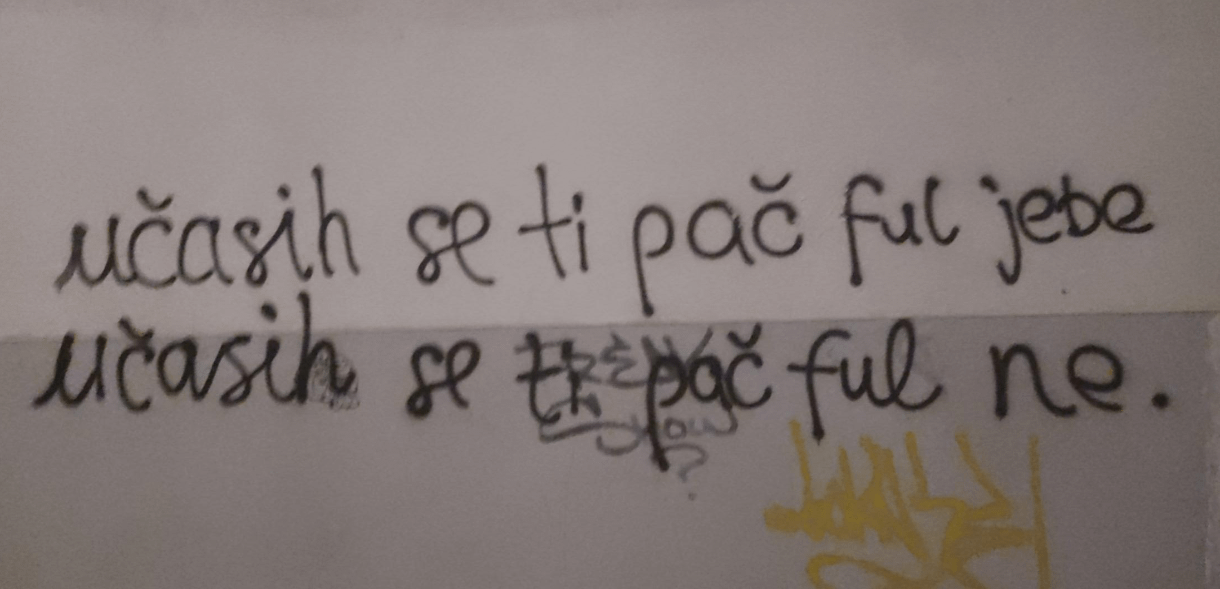 učasih se ti pač ful jebe
učasih se ti pač ful ne.